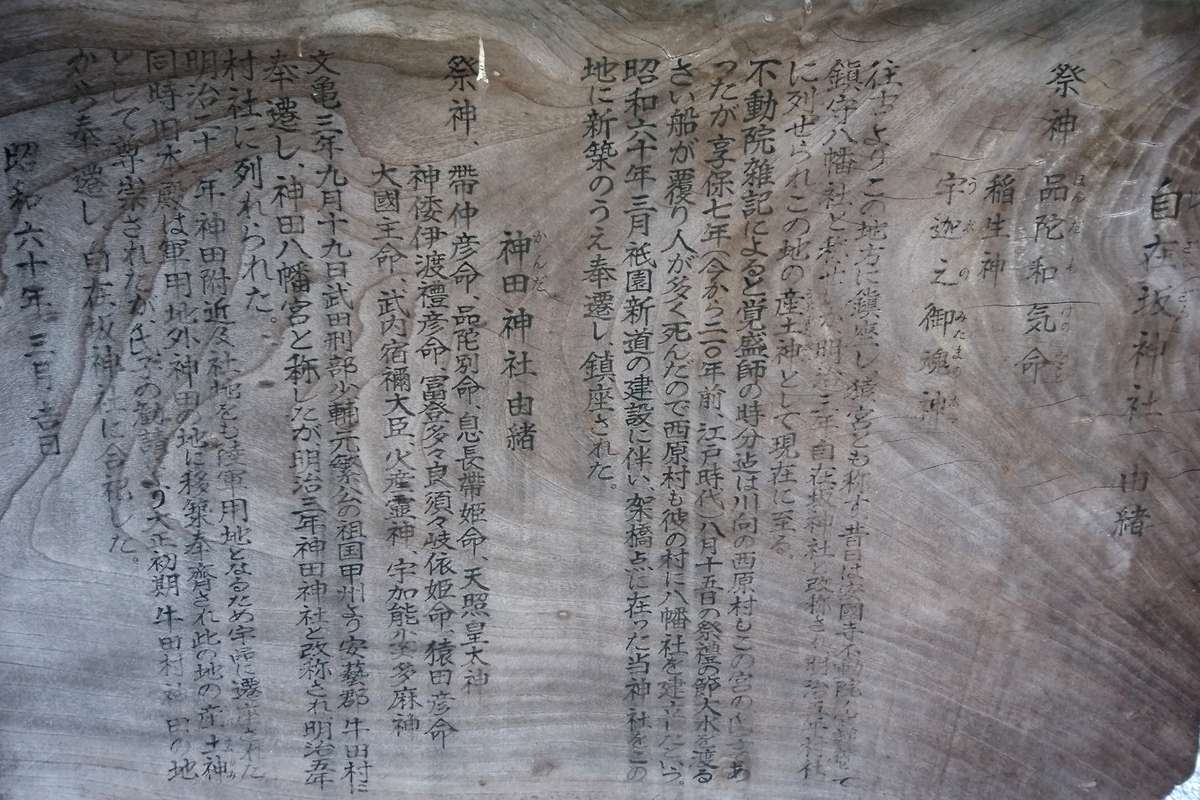 自在坂神社由緒
祭神
品陀和気命
稲生神
宇迦之御魂神
往古よりこの地方に鎮座し猿宮とも称す昔日は安国寺不動院の
鎮守八幡社と 明治三年自在坂神社と改称され
に列せられこの地の産土神として現在に至る。
不動院雑記によると覚盛師の時分迄は川向の西原村もこの宮の あ
ったが享保七年(今から二六〇年前、江戸時代)八月十五日の祭禮の節大水を渡る
さい船が覆り人が多く死んだので西原村も彼の村に八幡社を建立したという。
昭和六十年三月祇園新道の建設に伴い、架橋点に在った当神社をこの
地に新築のうえ奉遷し、鎮座された。
神田神社由緒
祭神、帶仲彦命、品陀別命、息長帶姫命、天照皇太神
神倭伊渡禮彦命、富登多々良須々岐依姫命、猿田彦命
大國主命、武内宿禰大臣、火産霊神、宇加能 多麻神
文亀三年九月十九日武田刑部少輔元繁公の祖国甲州より安藝郡牛田村に
奉遷し、神田八幡宮と称したが明治三年神田神社と改称され、明治五年
村社に列れられた。
明治二十 年神田附近及社地をも陸軍用地となるため宇品に遷座された
同時旧本殿は軍用地外神田の地に移築奉齋され此の地の産土神
として尊崇されたが、氏子の勧請 り大正初期牛田村 の地
から奉遷し自在坂神社に合祀した。
昭和六十年三月吉日